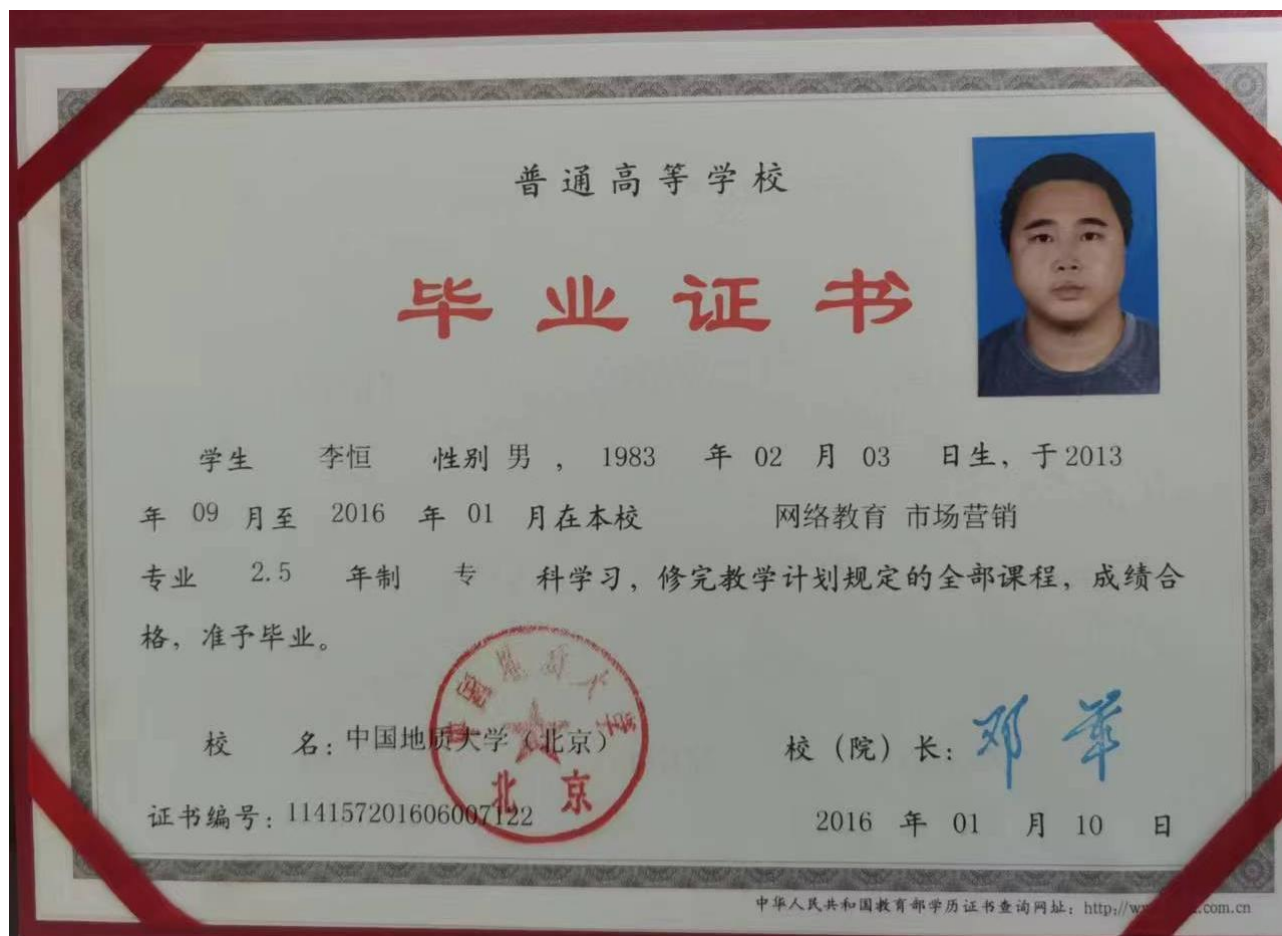 普通高等学校
毕业证书
学生 李恒 性别 男 ， 1983 年 02 月 03 日生，于2013
年 09 月至 2016 年 01 月在本校 网络教育 市场营销
专业 2.5 年制 专 科学习，修完教学计划规定的全部课程，成绩合
格，准予毕业。
中国地质大学
北京
校 名：中国地质大学（北京） 校（院）长：邓军
证书编号：114157201606007122 2016 年 01 月 10 日
中华人民共和国教育部学历证书查询网址：http://w .com.cn